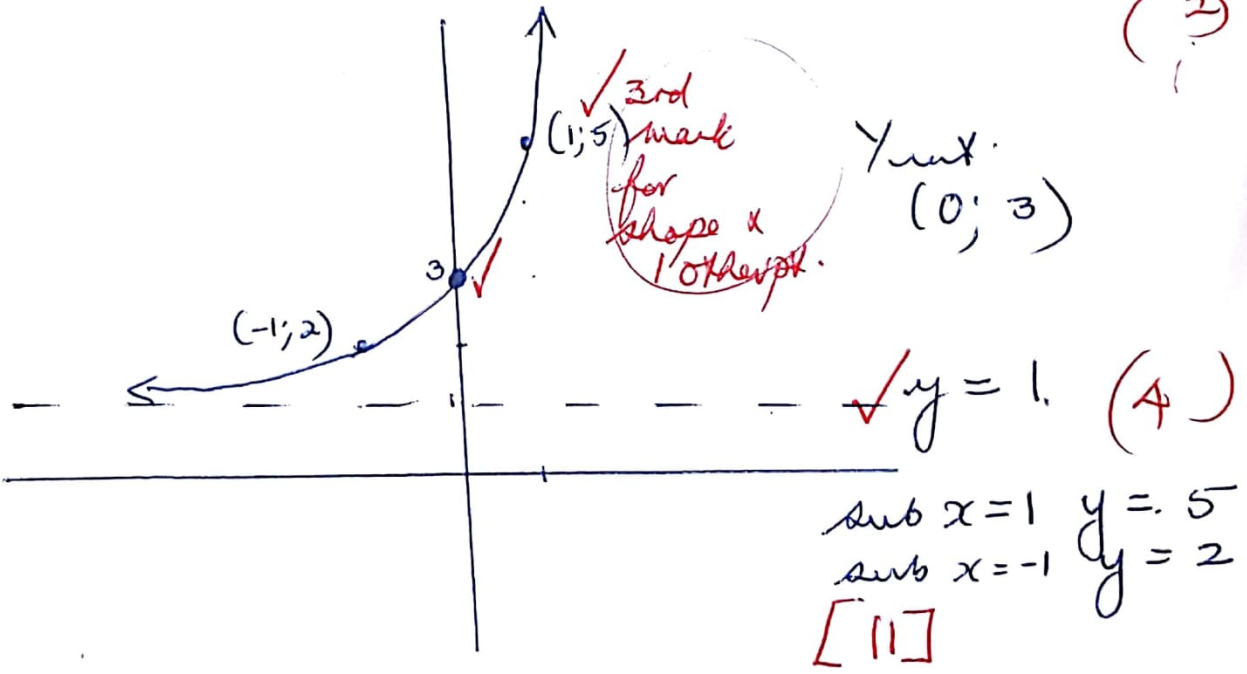 ✓ 3rd
(1; 5) mark
for
shape &
1 other pt.
Y int.
(0; 3)
3 ✓
(-1; 2)
1
✓ y = 1. (4)
sub x = 1 y = 5
sub x = -1 y = 2
[11]